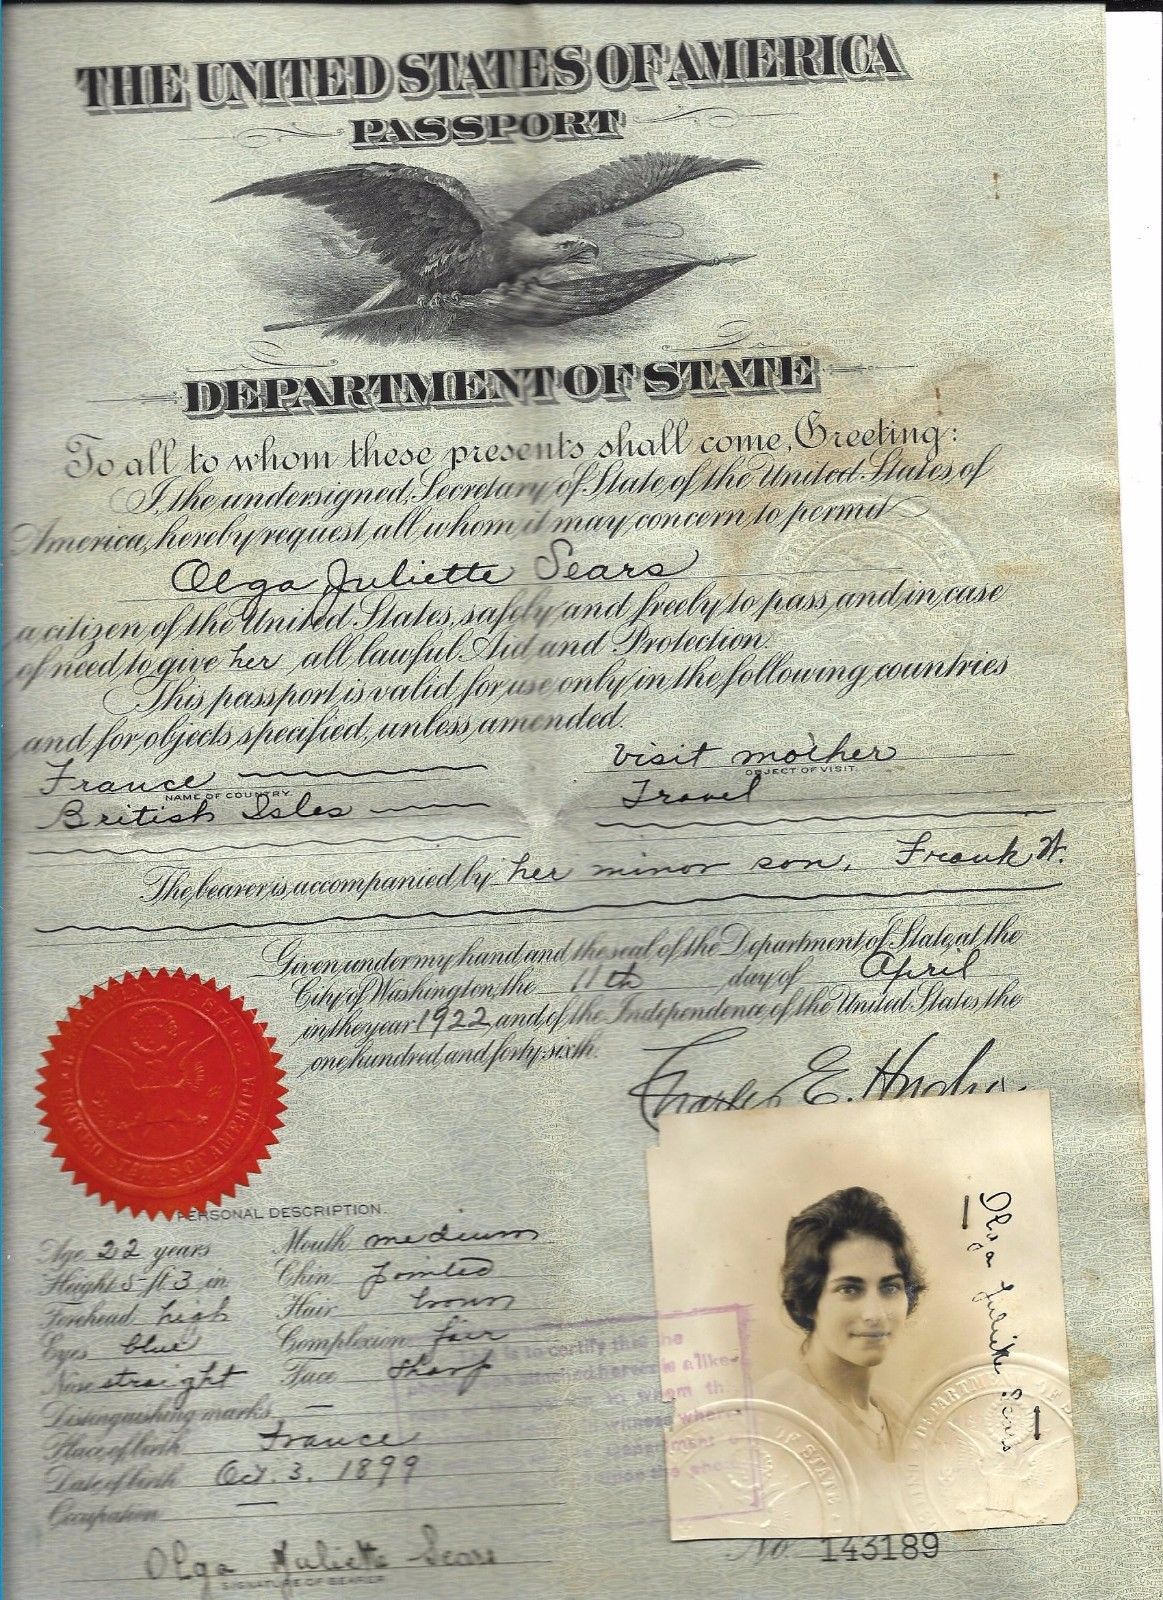 THE UNITED STATES OF AMERICA
PASSPORT
DEPARTMENT OF STATE
To all to whom these presents shall come, Greeting:
I, the undersigned, Secretary of State of the United States of
America, hereby request all whom it may concern to permit
Olga Juliette Sears
a citizen of the United States, safely and freely to pass, and in case
of need to give her all lawful Aid and Protection.
This passport is valid for use only in the following countries
and for objects specified, unless amended.
France Visit mother
NAME OF COUNTRY. OBJECT OF VISIT.
British Isles Travel
The bearer is accompanied by her minor son, Frank W.
Given under my hand and the seal of the Department of State, at the
City of Washington, the 11th day of April
in the year 1922 and of the Independence of the United States the
one hundred and forty-sixth.
Charles E. Hughes
UNITED STATES OF AMERICA
PERSONAL DESCRIPTION.
Age 22 years Mouth medium
Height 5 ft 3 in Chin pointed
Forehead high Hair brown
Eyes blue Complexion fair
Nose straight Face sharp
Distinguishing marks —
Place of birth France
Date of birth Oct. 3. 1899
Occupation —
Olga Juliette Sears
SIGNATURE OF BEARER
is to certify that the
attached hereto is a like-
whom th
witness where-
Olga Juliette Sears
DEPARTMENT OF
OF STATE
No. 143189